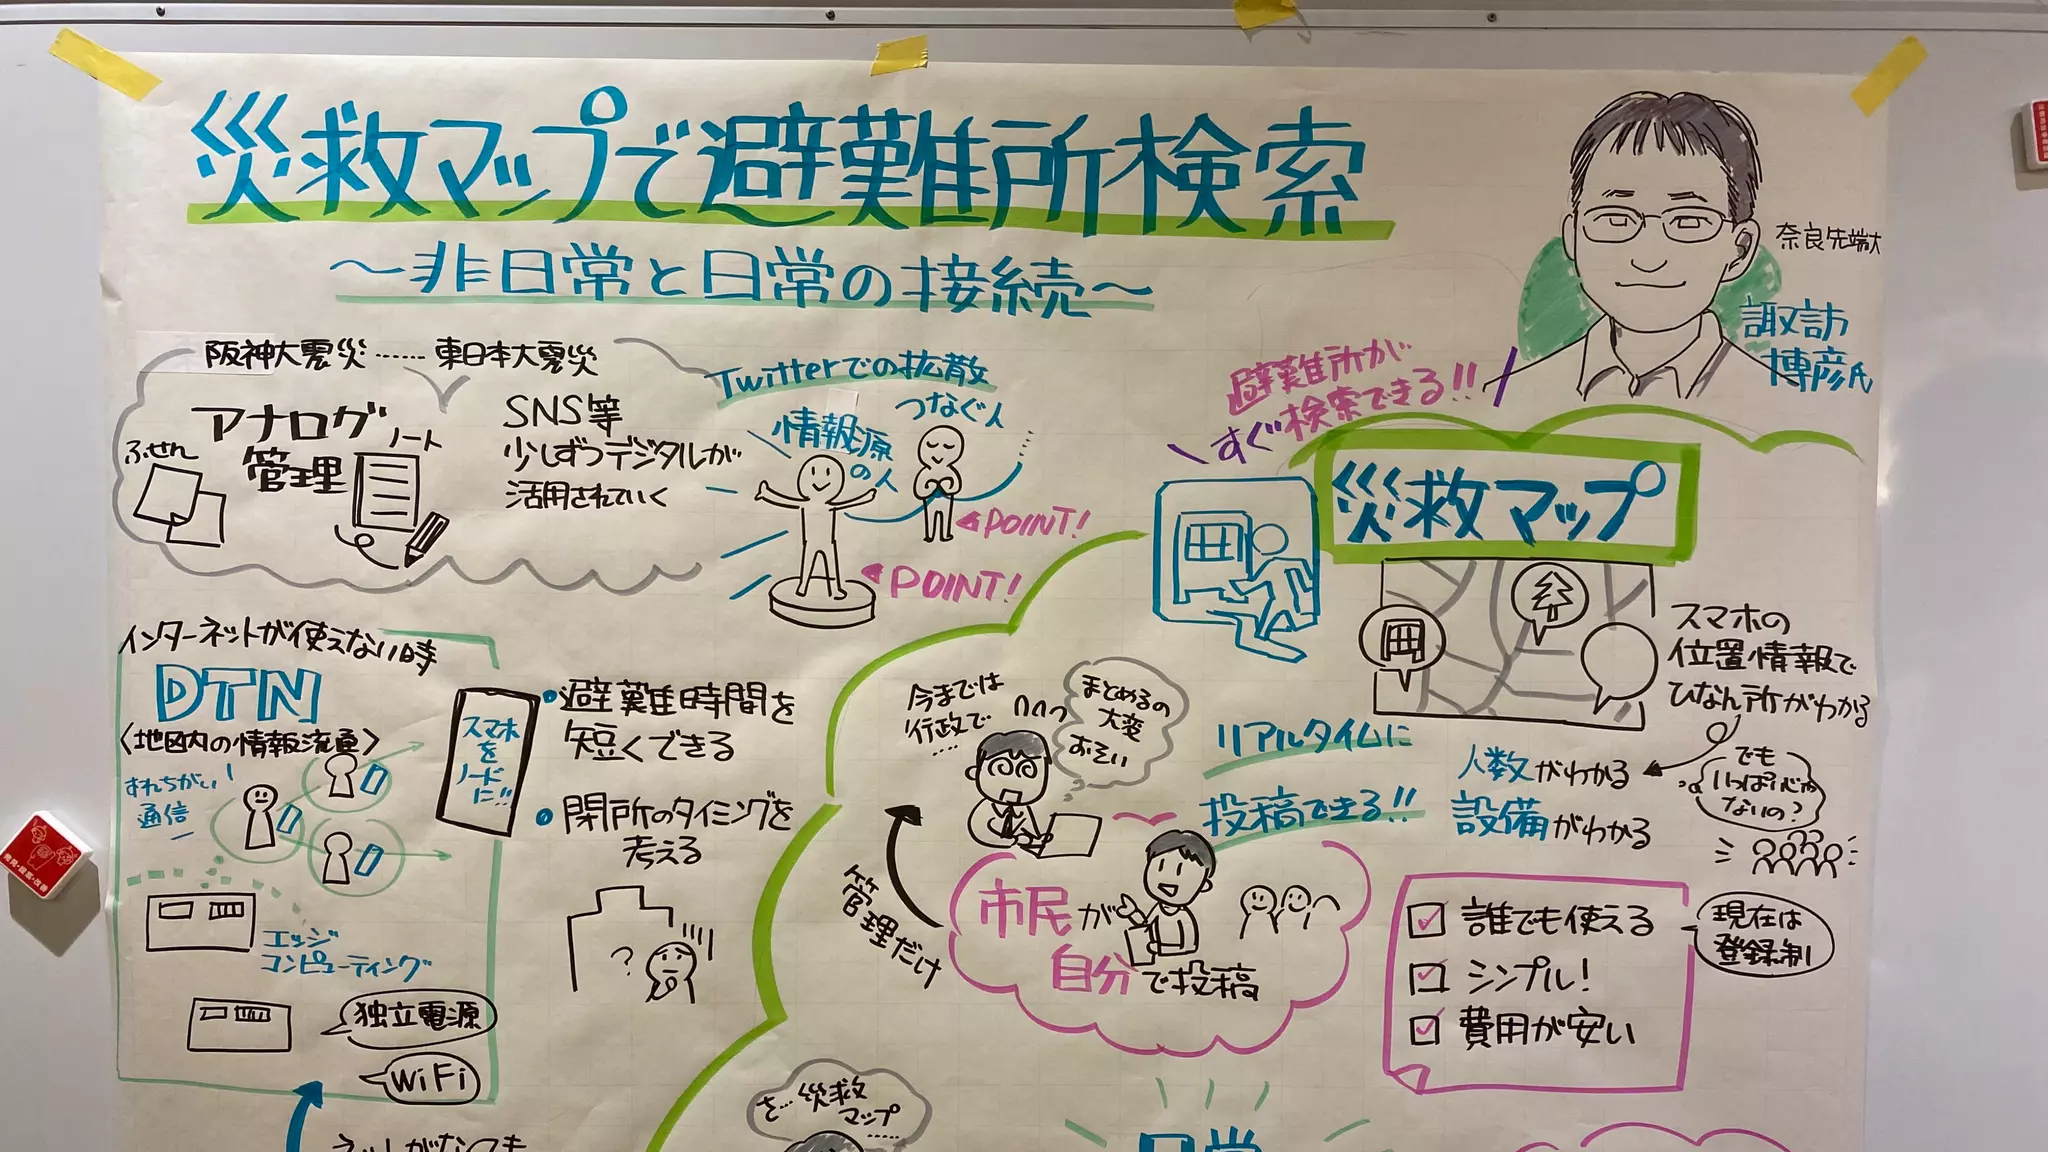 災救マップで避難所検索
〜非日常と日常の接続〜
奈良先端大
諏訪
博彦氏
阪神大震災……東日本大震災
アナログ
管理
ふせん
ノート
SNS等
少しずつデジタルが
活用されていく
Twitterでの拡散
情報源
の人
つなぐ人
POINT!
POINT!
避難所が
すぐ検索できる!!
災救マップ
スマホの
位置情報で
ひなん所がわかる
人数がわかる
設備がわかる
でも
いっぱいじゃ
ないの?
インターネットが使えない時
DTN
〈地区内の情報流通〉
すれちがい
通信
スマホ
を
ノード
に!!
エッジ
コンピューティング
独立電源
WiFi
・避難時間を
短くできる
・閉所のタイミングを
考える
?
今までは
行政で
……
まとめるの
大変
おそい
リアルタイムに
投稿できる!!
管理だけ
市民が
自分で投稿
誰でも使える
シンプル!
費用が安い
現在は
登録制
さ…災救
マップ……
ネットがなくても
日常